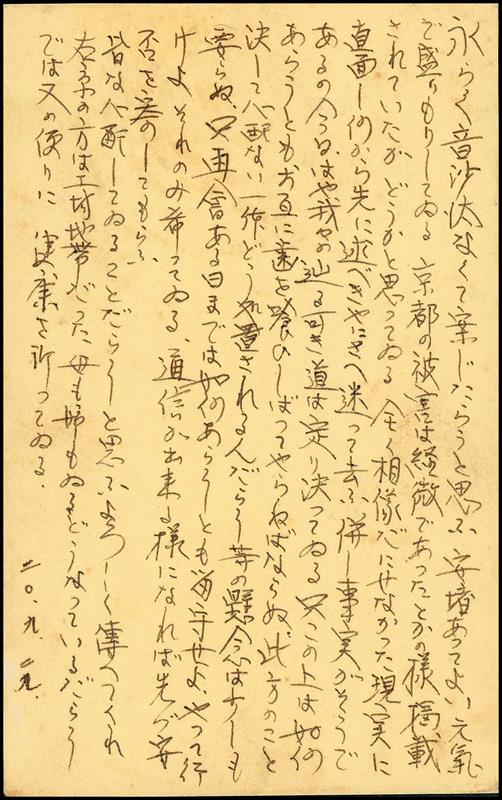 永らく音沙汰なくて案じたらうと思ふ 安堵あつてよい元氣
で盛りもりしてゐる 京都の被害は経微であつたとかの様掲載
されていたがどうかと思つてゐる 全く相像だにせなかった現実に
直面し何から先に述べきやにさへ迷つて去ふ 併し事実がそうで
あるの今日、はや我々の辿る可き道は定り決つてゐる 只この上は如何
あらうともお互に歯を喰ひしばつてやらねばならぬ 此方のこと
決して心配ない 一作どう 置されるんだらう等の懸念は少しも
要らぬ 只再会ある日までは如何あらうとも留守せよ、やつて行
けよ それのみ希つてゐる、通信が出来る様になれば先づ安
否を案のしてもらふ
皆な心配してゐることだらうと思ふ よろしく傳へてくれ
の方は工場地帯だつた 母も姉もゐるどうなっているだらう
では又の便りに 健康を祈つてゐる.
二〇.九.二九.